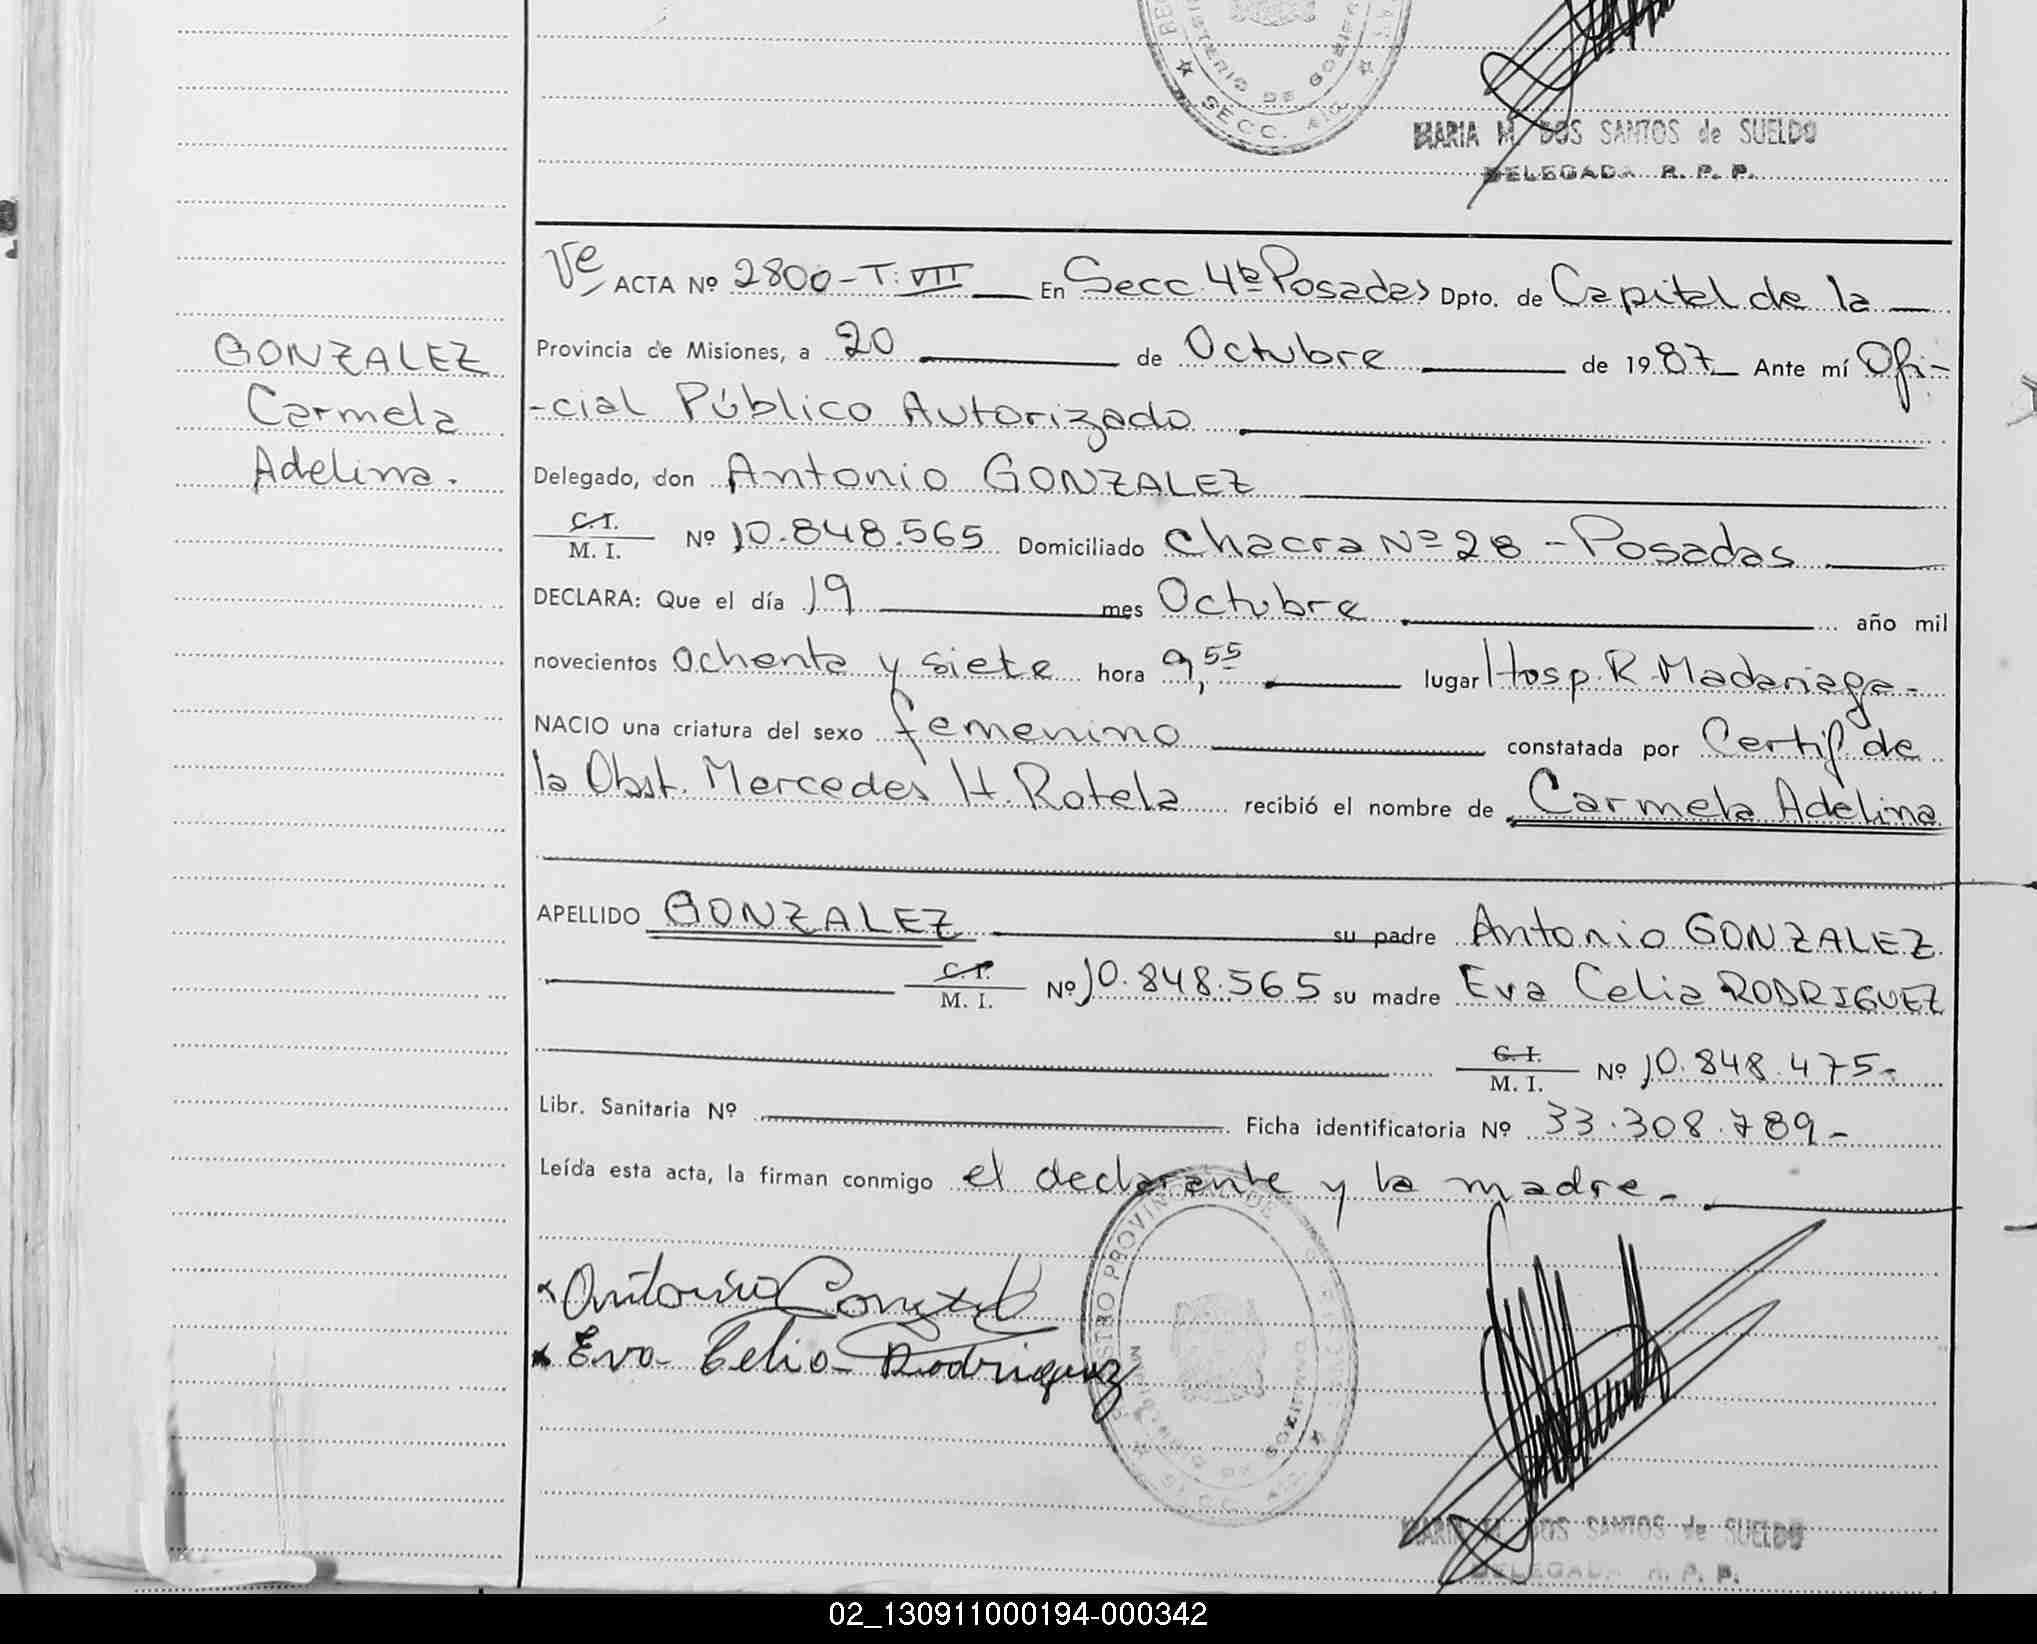 MINISTERIO DE GOBIERNO
★ SECC. 4ta ★
MARIA M. DOS SANTOS de SUELDO
DELEGADA R. P. P.
Ve ACTA Nº 2800-T: VII En Secc. 4ta Posadas Dpto. de Capital de la
GONZALEZ
Carmela
Adelina.
Provincia de Misiones, a 20 de Octubre de 1987 Ante mí Ofi-
-cial Público Autorizado
Delegado, don Antonio GONZALEZ
C.I.
M. I. Nº 10.848.565 Domiciliado Chacra Nº 28 - Posadas
DECLARA: Que el día 19 mes Octubre año mil
novecientos ochenta y siete hora 9,55 lugar Hosp. R. Madariaga-
NACIO una criatura del sexo femenino constatada por Certif. de
la Obst. Mercedes H. Rotela recibió el nombre de Carmela Adelina
APELLIDO GONZALEZ su padre Antonio GONZALEZ
C.I.
M. I. Nº 10.848.565 su madre Eva Celia RODRIGUEZ
C.I.
M. I. Nº 10.848.475-
Libr. Sanitaria Nº Ficha identificatoria Nº 33.308.789-
Leída esta acta, la firman conmigo el declarante y la madre-
Antonio Gonzalez
Eva Celia Rodriguez
REGISTRO PROVINCIAL DE
MINISTERIO DE GOBIERNO
MARIA M. DOS SANTOS de SUELDO
DELEGADA R. P. P.
02_130911000194-000342